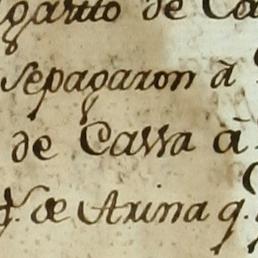 garito de Ca
sepagaron à
de Cassa à
de Arina q.